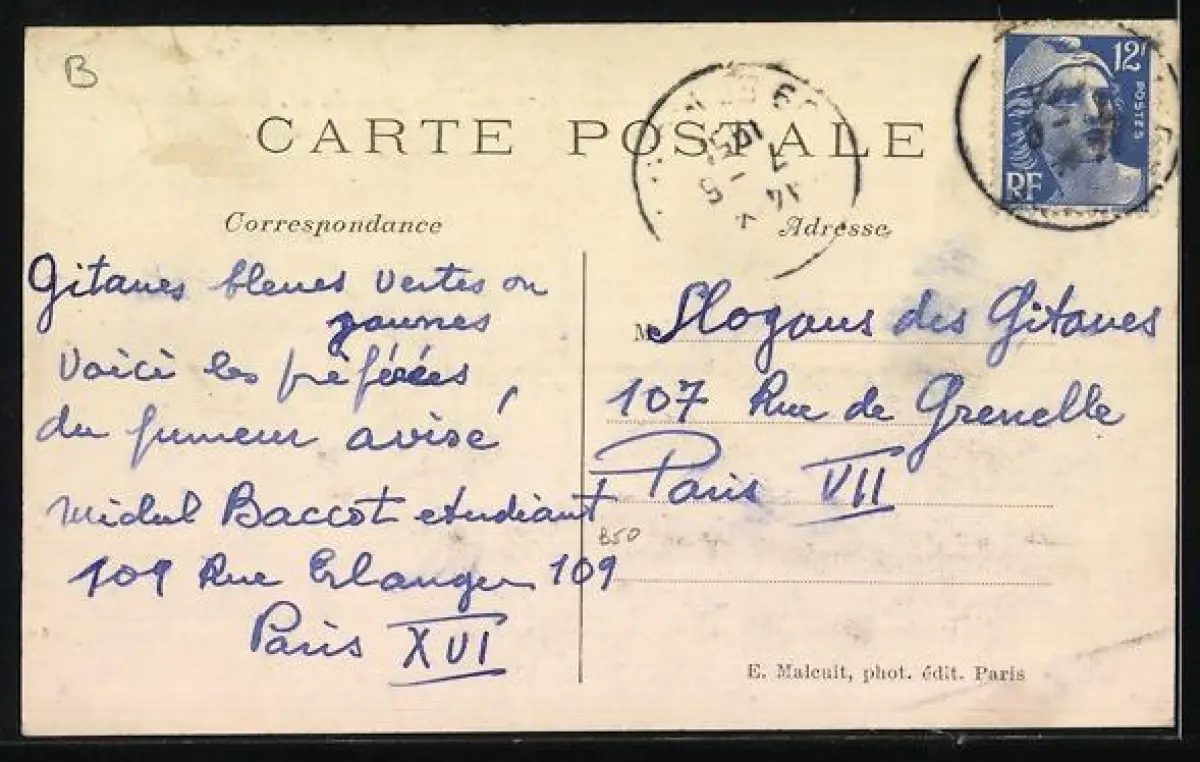 B
CARTE POSTALE
12F
POSTES
RF
Correspondance
Gitanes bleues vertes ou
jaunes
Voici les préférées
du fumeur avisé
Michel Baccot etudiant
109 Rue Erlanger 109
Paris XVI
Adresse
M Slogans des Gitanes
107 Rue de Grenelle
Paris VII
B50
E. Malcuit, phot. édit. Paris